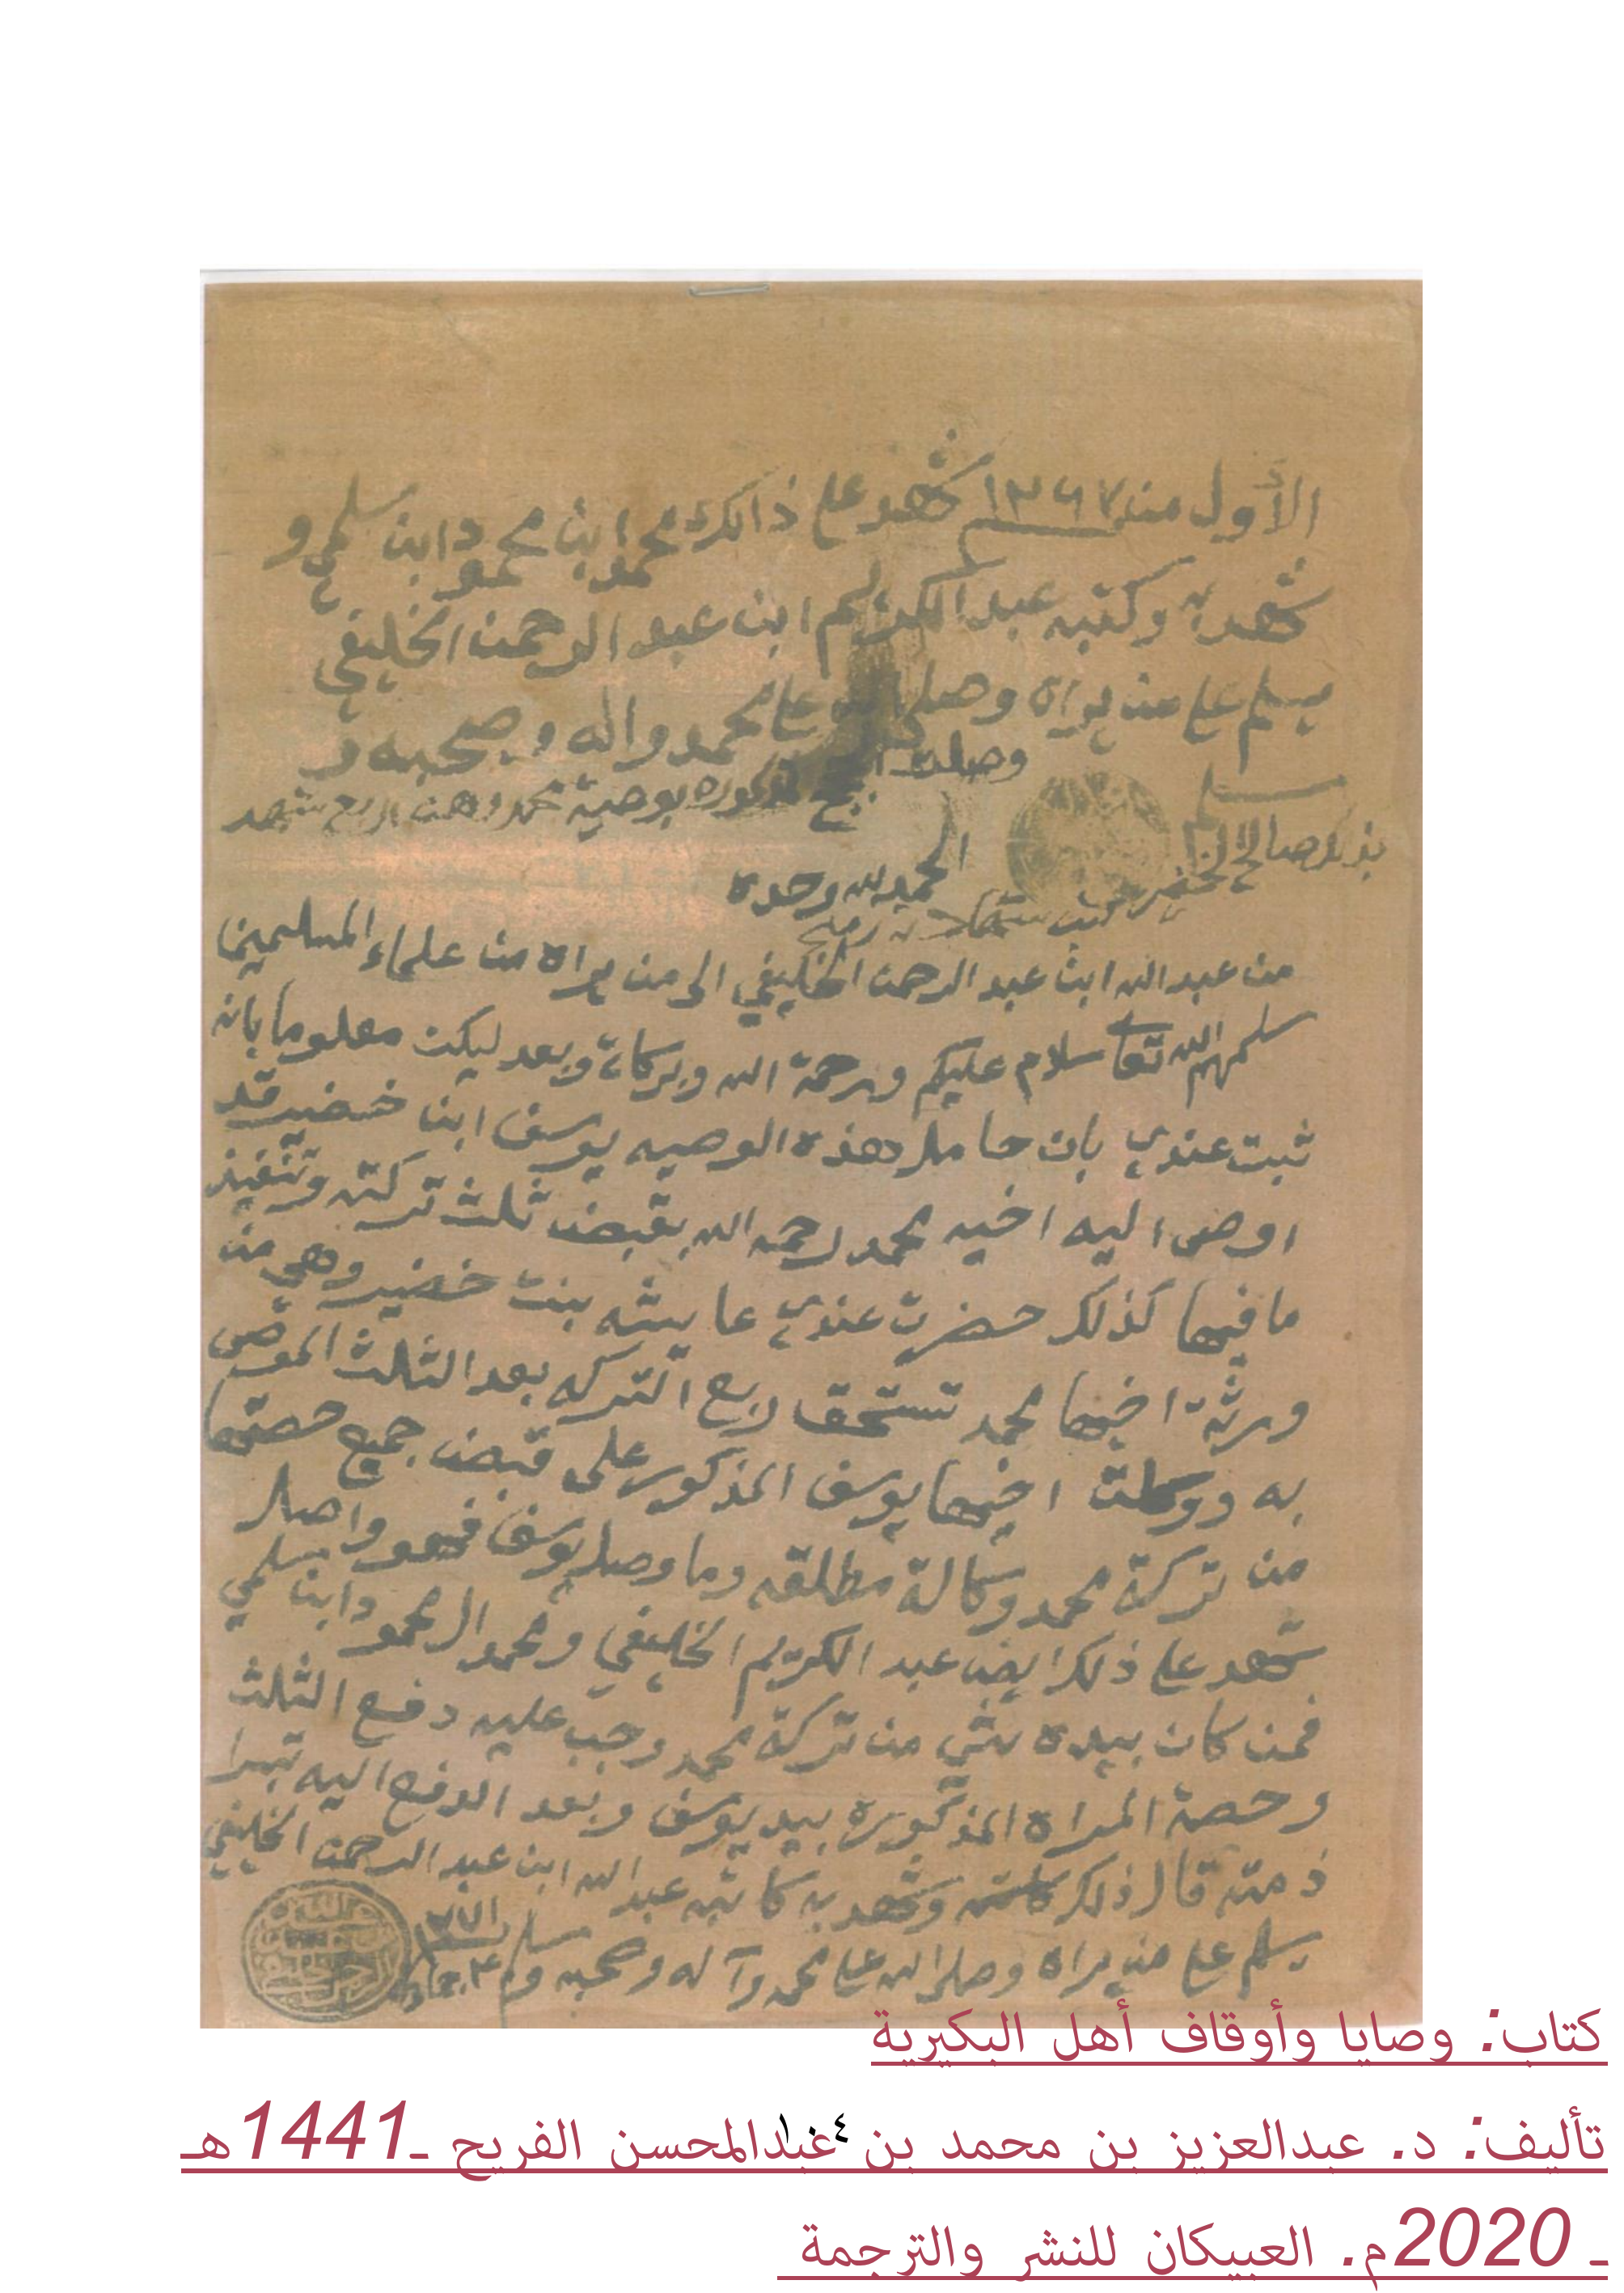 الأول من ١٣٦٧ شهد على ذالك محمد ابن محمود ابن سلمي و
شهد به وكتبه عبد الكريم ابن عبد الرحمن الخليفي
مسلم على من يراه وصلى الله على محمد واله وصحبه و
سلم
وصلت المذكوره بوصية محمد وهن اربع شهد
بذلك صالح الخضير
الحمد لله وحده
من عبد الله ابن عبد الرحمن الخليفي الى من يراه من علماء المسلمين
سلمهم الله تعا سلام عليكم ورحمة الله وبركاته وبعد ليكن معلوما بانه
ثبت عندي بان حامل هذه الوصيه يوسف ابن خضير قد
اوصى اليه اخيه محمد رحمه الله بقبض ثلث تركته وتنفيذ
ما فيها كذلك حضرت عندي عايشه بنت خضير وهي من
ورثة اخيها محمد تستحق ربع التركه بعد الثلث الموصى
به ووكلت اخيها يوسف المذكور على قبض جميع حصتها
من تركة محمد وكالة مطلقه وما وصل يوسف فهو واصل
شهد على ذلك ايضا عبد الكريم الخليفي ومحمد المحمود ابن سلمي
فمن كان بيده شي من تركة محمد وجب عليه دفع الثلث
وحصة المراه المذكوره بيد يوسف وبعد الدفع اليه تبرا
ذمته قال ذلك وشهد به كاتبه عبد الله ابن عبد الرحمن الخليفي
مسلم على من يراه وصلى الله على محمد وآله وصحبه وسلم
كتاب: وصايا وأوقاف أهل البكيرية
تأليف: د. عبدالعزيز بن محمد بن عبدالمحسن الفريح ـ1441هـ
١٠٤
ـ 2020م. العبيكان للنشر والترجمة